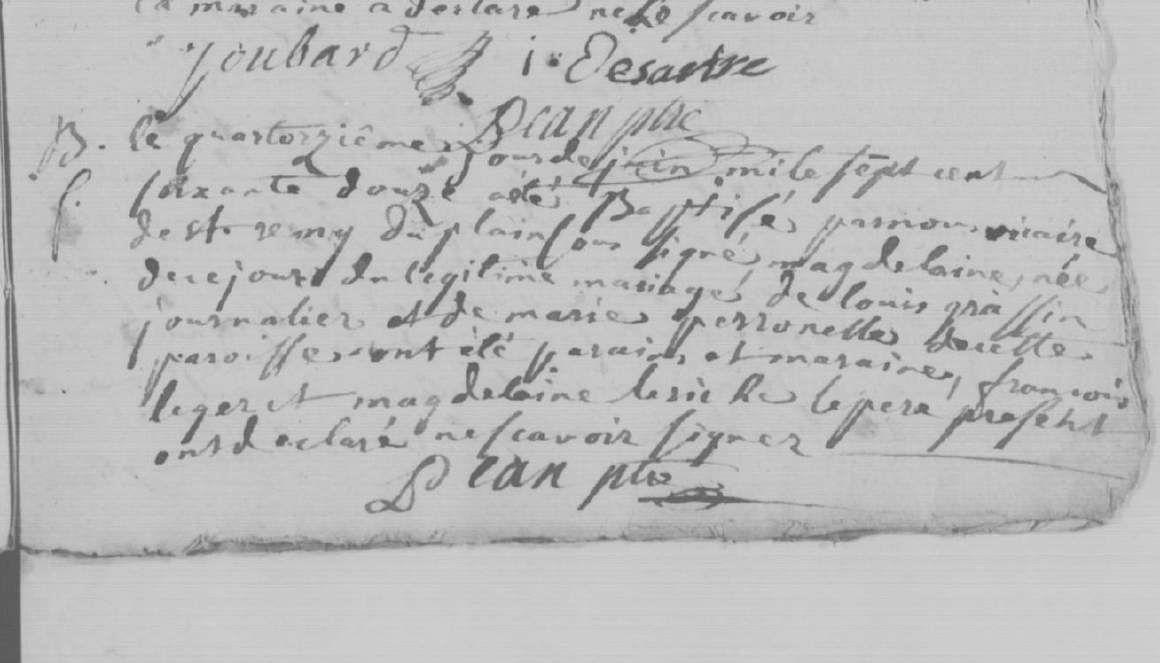 la maraine a declaré ne le scavoir
Joubard i. Desartre
Dean ptre
B. le quatorziême jour de juin mil sept cent
f. soixante douze a été Baptisé par nous vicaire
de st remy du plain sous signé, magdelaine, née
de ce jour du legitime mariage de louis grassin
journalier et de marie perronelle de cette
paroisse. ont été parain et maraine, françois
leger et magdelaine leriche le pere present
ont declaré ne scavoir signer
Dean ptre